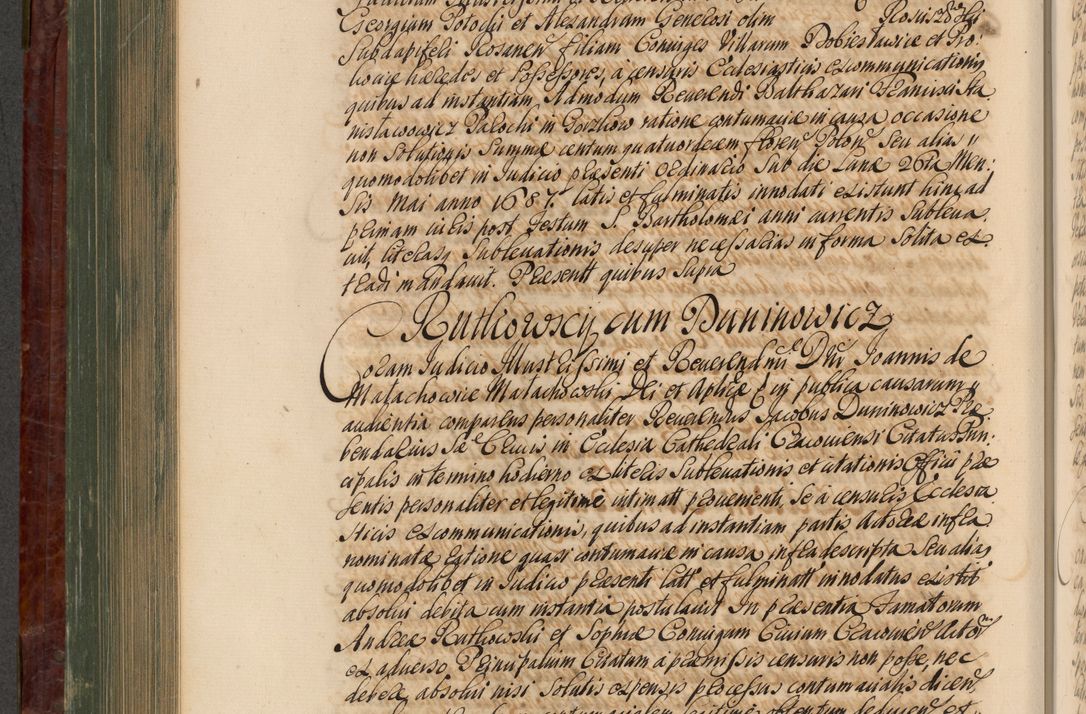 Georgium Potocki et Alexandram Genelosi olim
Subdapiferi Rosanen filiam Coniuges Villarum Dobiesławice et Pro
howice hæredes et Possessores, a censuris Ecclesiasticis excommunicationis
quibus ad instantiam Admodum Reverendi Balthazari Francisci Sta
nisławowicz Parochi in Gorzkow ratione contumaciæ in causa occasione
non Solutionis Summæ centum quatuordecem floren Polon Seu alias
quomodolibet in Iudicio præsenti Ordinario Sub die Lunæ 26ta Men:
sis Mai anno 1687 latis et fulminatis innodati existunt hinc ad
primam iuris post Festum S. Bartholomæi anni currentis Subleva
vit, literasq Sublevationis desuper necessarias in forma Solita ex
tradi mandavit. Præsentt quibus Supra
Rutkowscy cum Duninowicz
Coram Iudicio Illustrissimi et Reverendmi Dni Ioannis de
Małachowice Małachowski Dei et Aplicæ in publica causarum
audientia comparens personaliter Reverendus Iacobus Duninowicz Præ
bendarius Sæ Crucis in Ecclesia Cathedrali Cracoviensi Citatus Prin
cipalis in termino hodierno ex literis Sublevationis et citationis Officii præ
sentis personaliter et legitime intimatt provenienti, Se a censuris Ecclesia
sticis excommunicationis, quibus ad instantiam partis Actoreæ infra
nominatæ ratione quasi contumaciæ in causa infradescripta Seu alias
quomodolibet in Iudicio præsenti latt et fulminatt innodatus existit
absolvi debita cum instantia postulavit In præsentia Famatorum
Andreæ Rutkowski et Sophiæ Coniugum Civium Cracovien Actor
ex adverso Principalium Citatum a præmissis censuris non posse, nec
debere absolvi nisi Solutis expensis processus contumacialis dicen